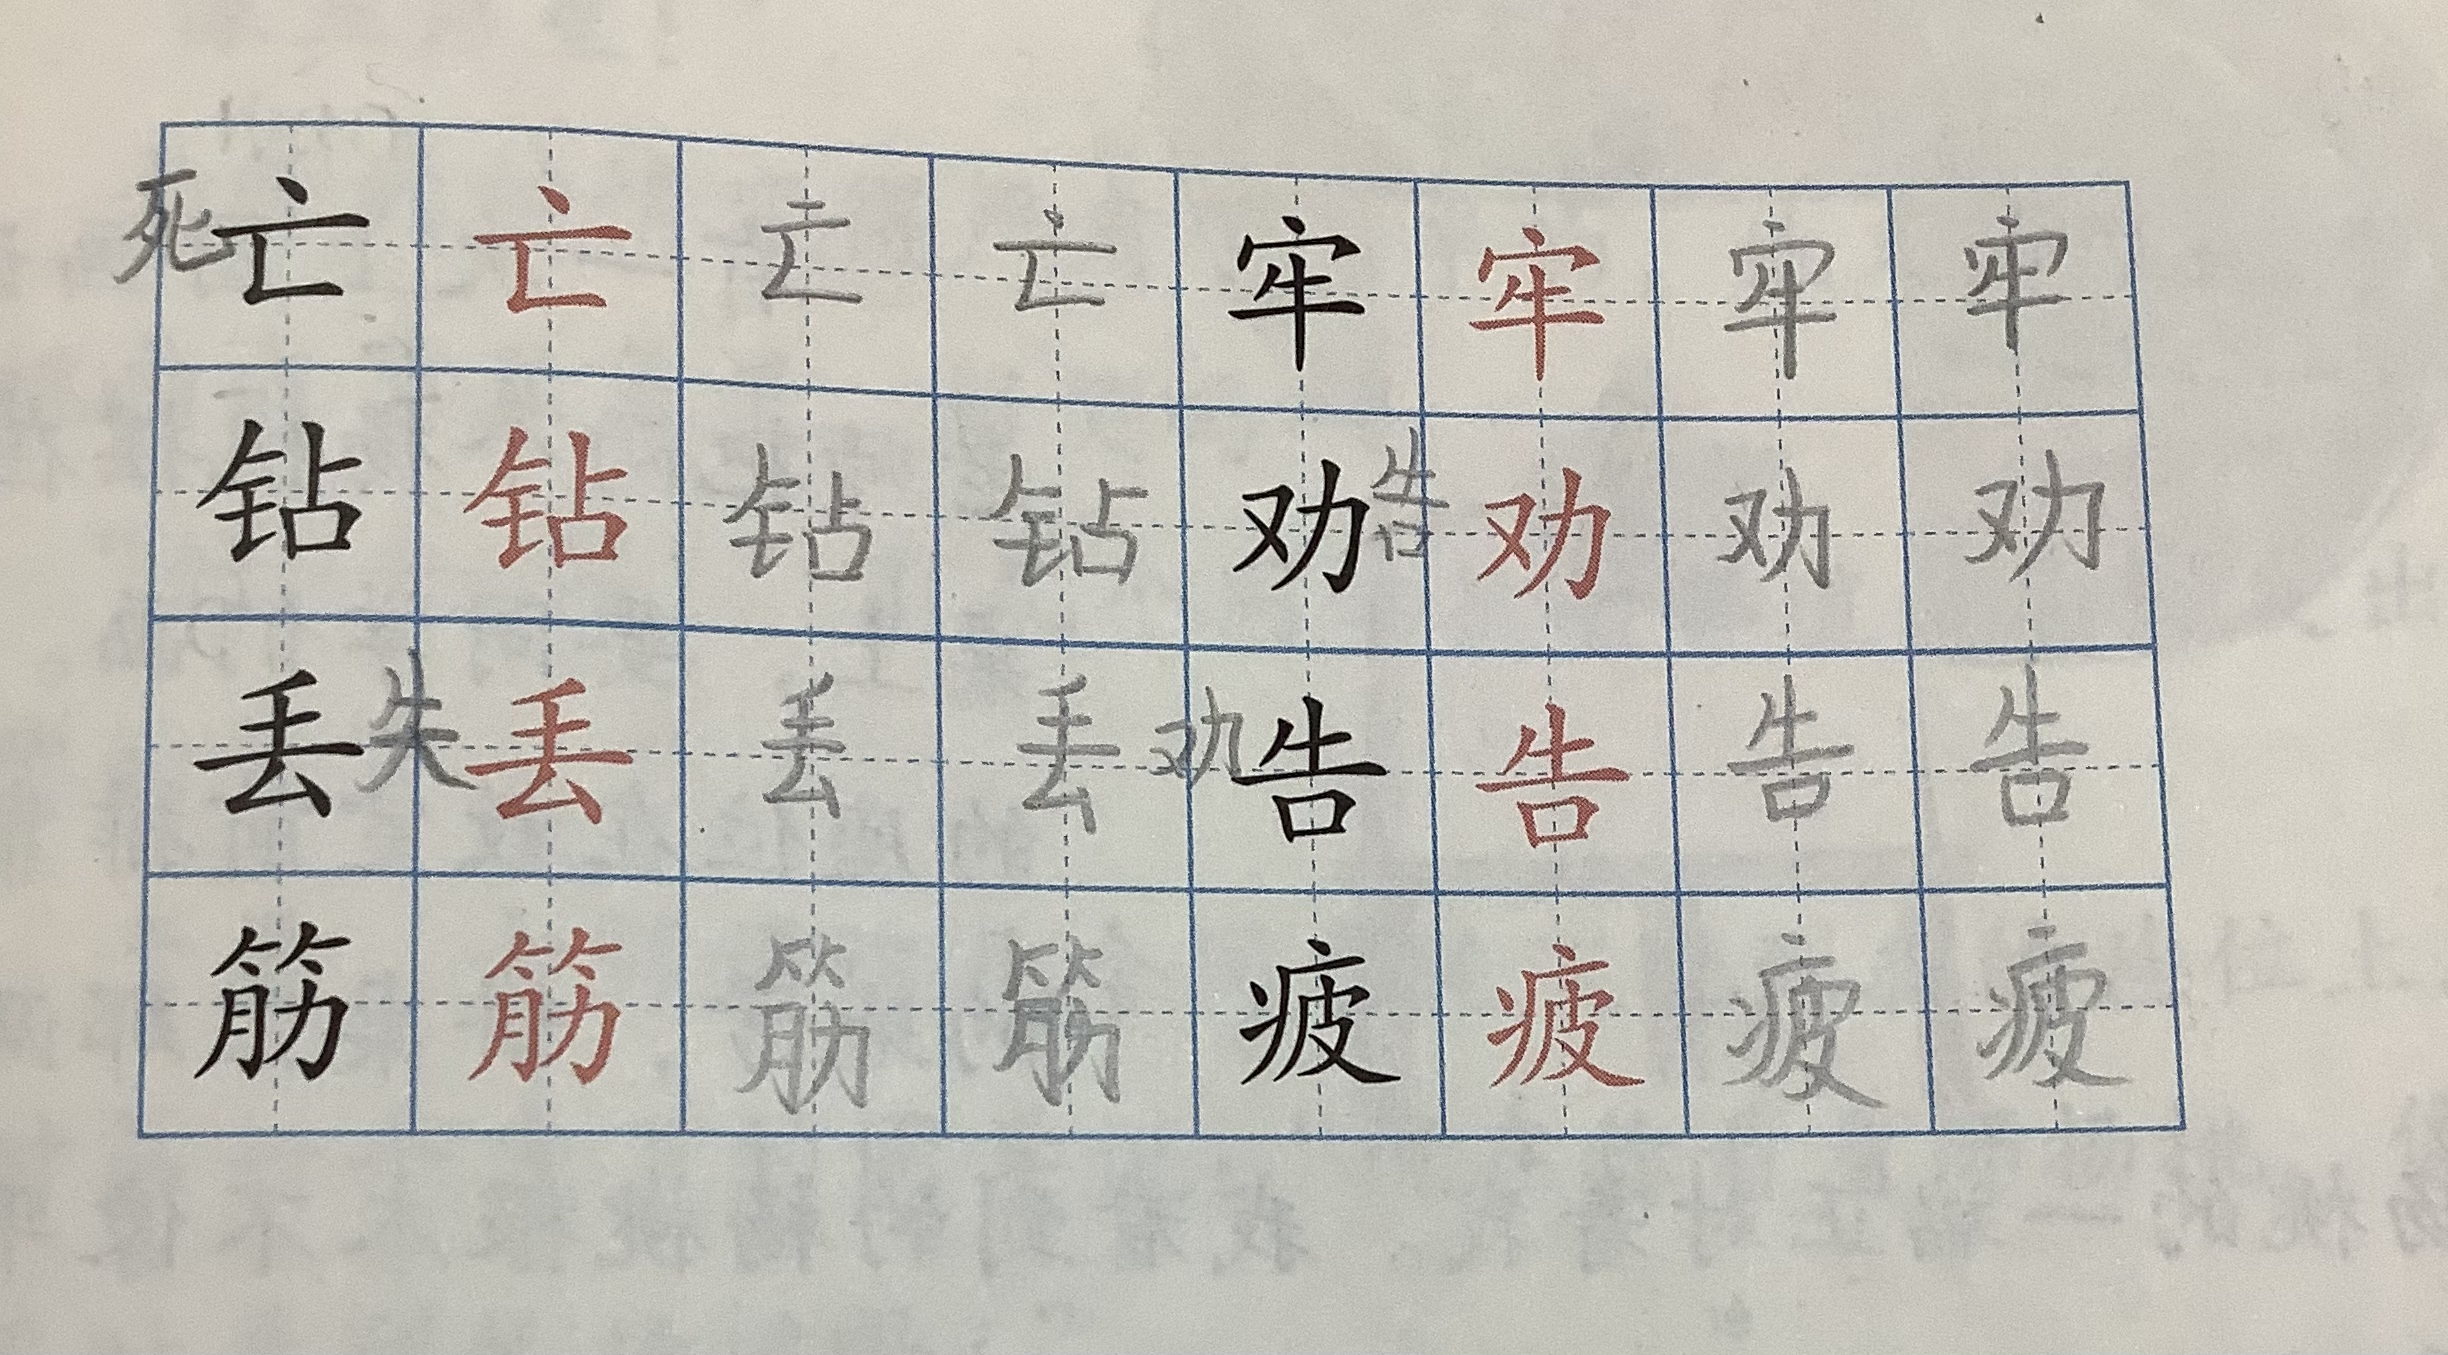 死亡 亡 亡 亡 牢 牢 牢 牢
钻 钻 钻 钻 劝告 劝 劝 劝
丢失 丢 丢 丢 劝告 告 告 告
筋 筋 筋 筋 疲 疲 疲 疲